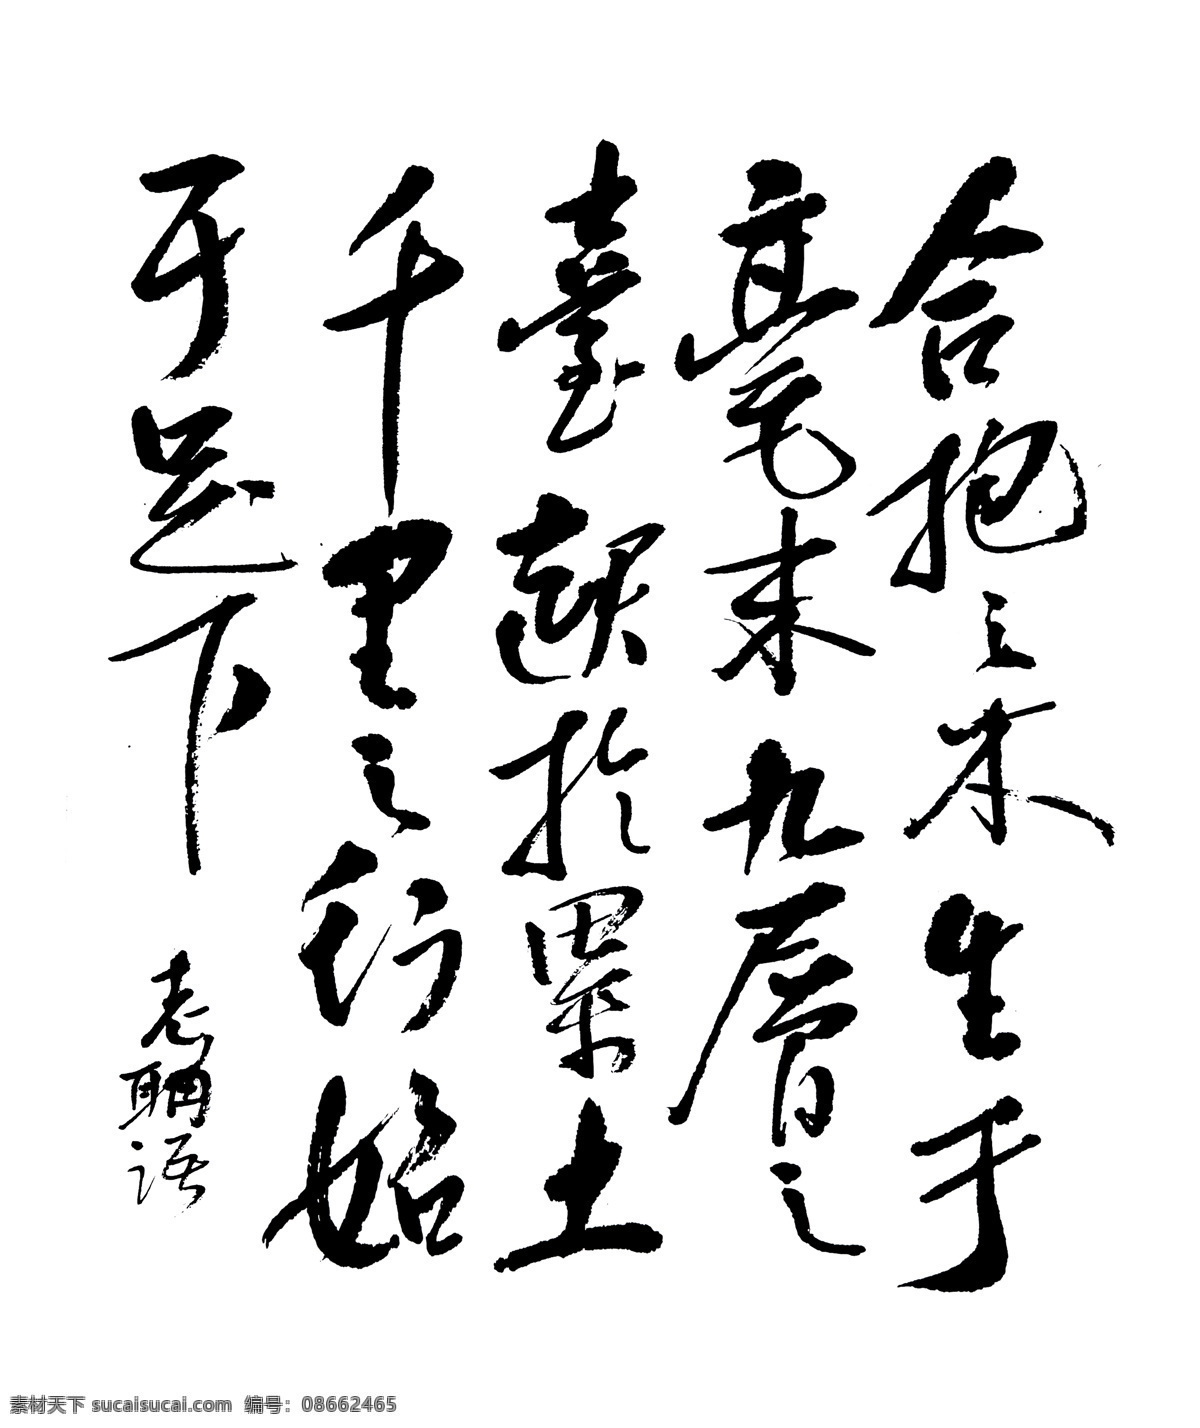 合抱之木生于
毫末九層之
臺起於累土
千里之行始
于足下
老聃语
素材天下 sucaisucai.com 编号：08662465